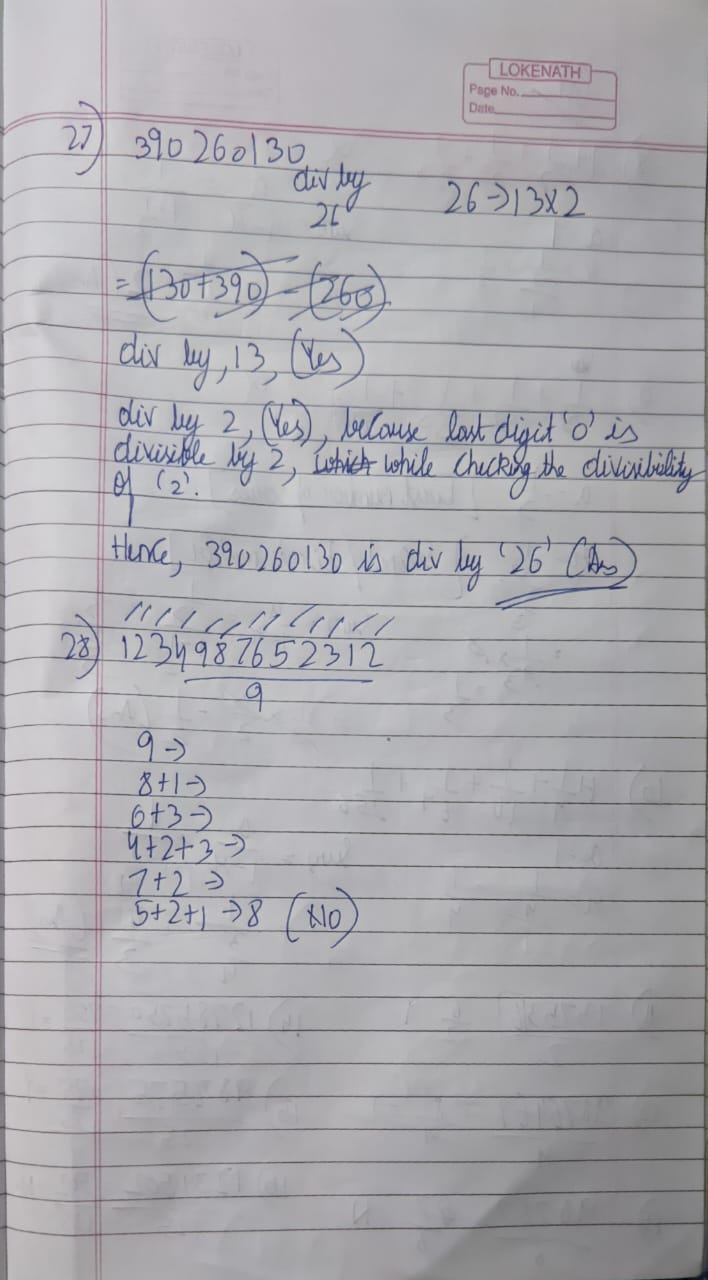 LOKENATH
Page No.
Date
27) 390260130
div by
26
26→13×2
= (130+390) - (260)
div by, 13, (Yes)
div by 2, (Yes), because last digit '0' is
divisible by 2, which while checking the divisibility
of '2'.
Hence, 390260130 is div by '26' (Ans)
28) 1234987652312
9
9→
8+1→
6+3→
4+2+3→
7+2→
5+2+1→8 (No)